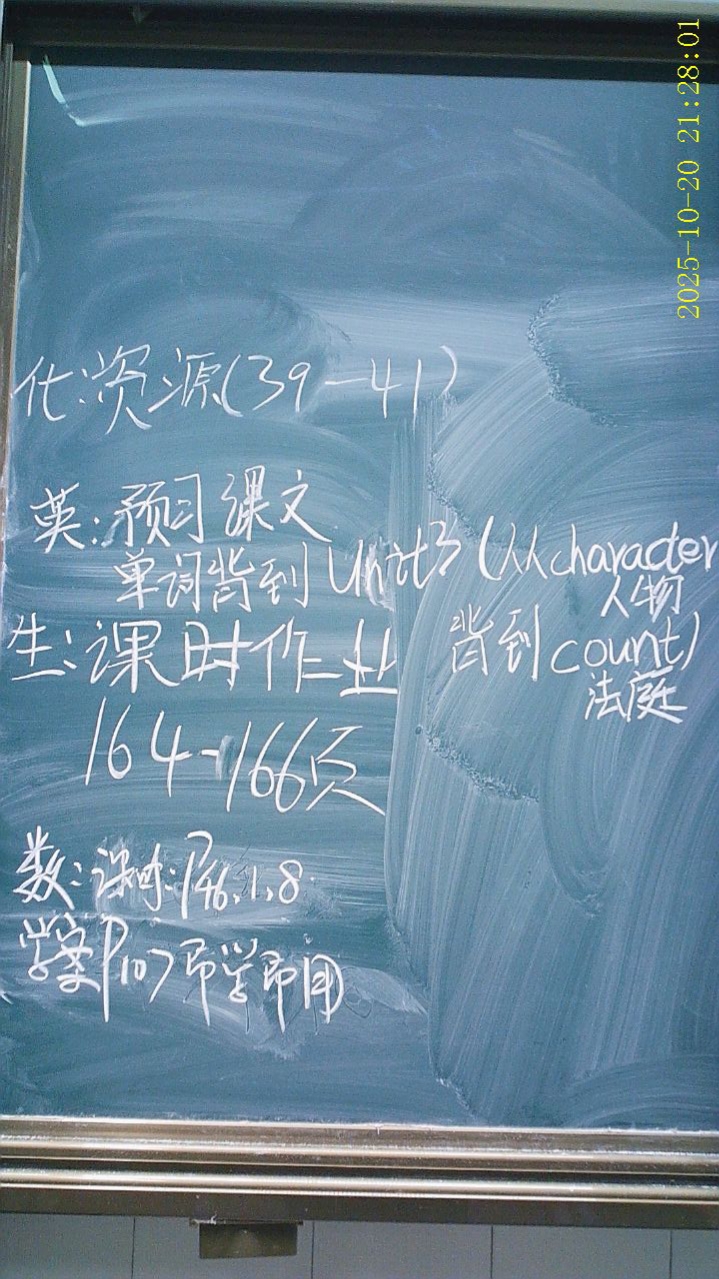 2025-10-20 21:28:01
化:资源(39-41)
英:预习课文
单词背到Unit3(从character
人物
背到count)
法庭
生:课时作业
164-166页
数:课时:P46.1.8.
学案P107即学即用